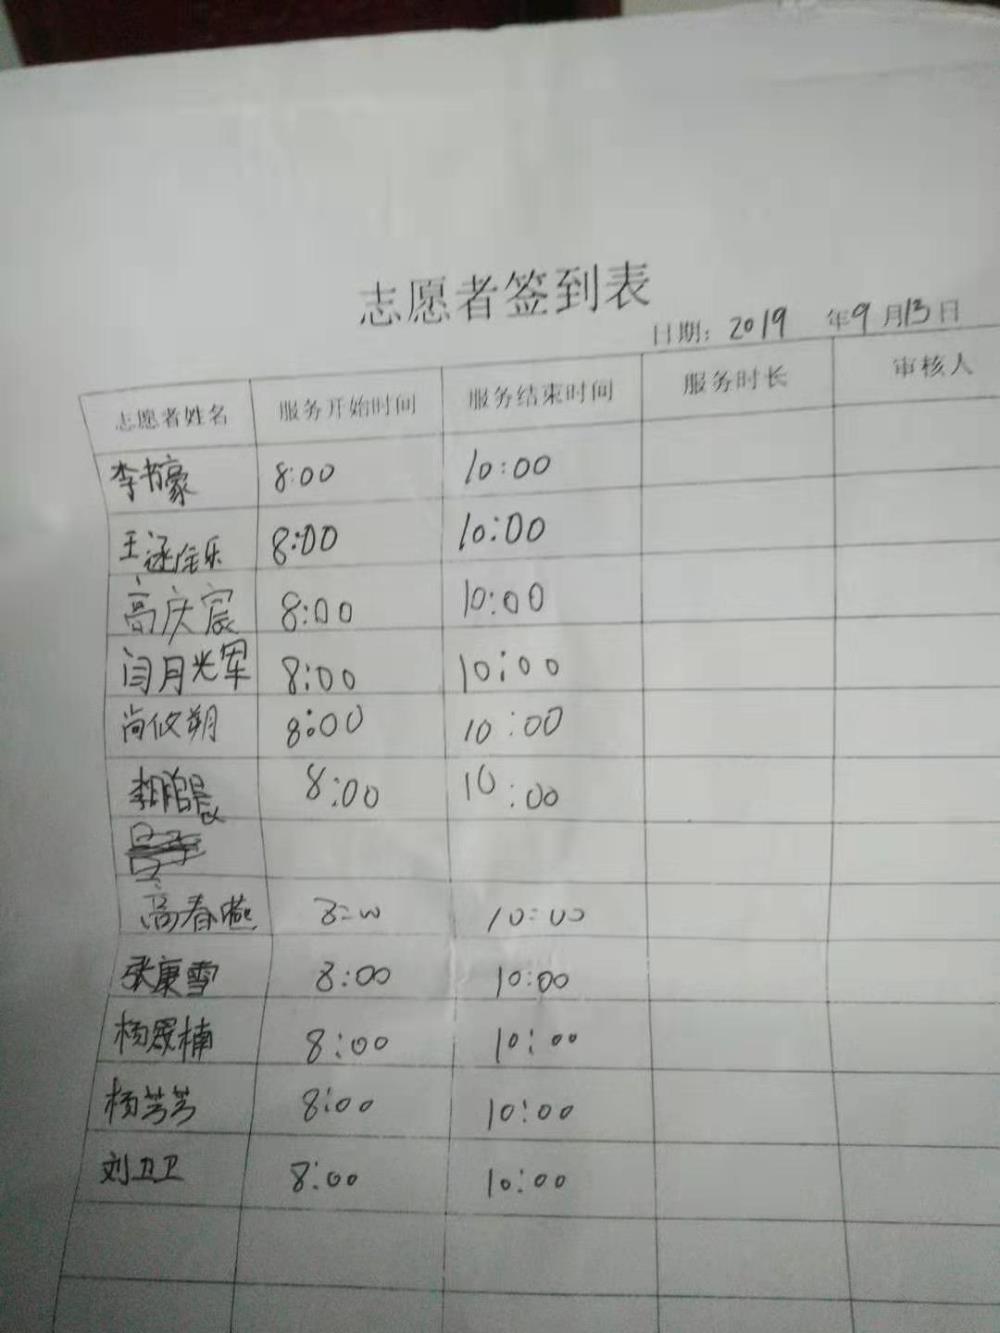 志愿者签到表
日期：2019 年9月13日
志愿者姓名 服务开始时间 服务结束时间 服务时长 审核人
李书豪 8:00 10:00
王 乐 8:00 10:00
高庆宸 8:00 10:00
闫月光军 8:00 10:00
尚攸朔 8:00 10:00
李 8:00 10:00
高春燕 8:00 10:00
张康雪 8:00 10:00
杨 楠 8:00 10:00
杨芳芳 8:00 10:00
刘卫卫 8:00 10:00